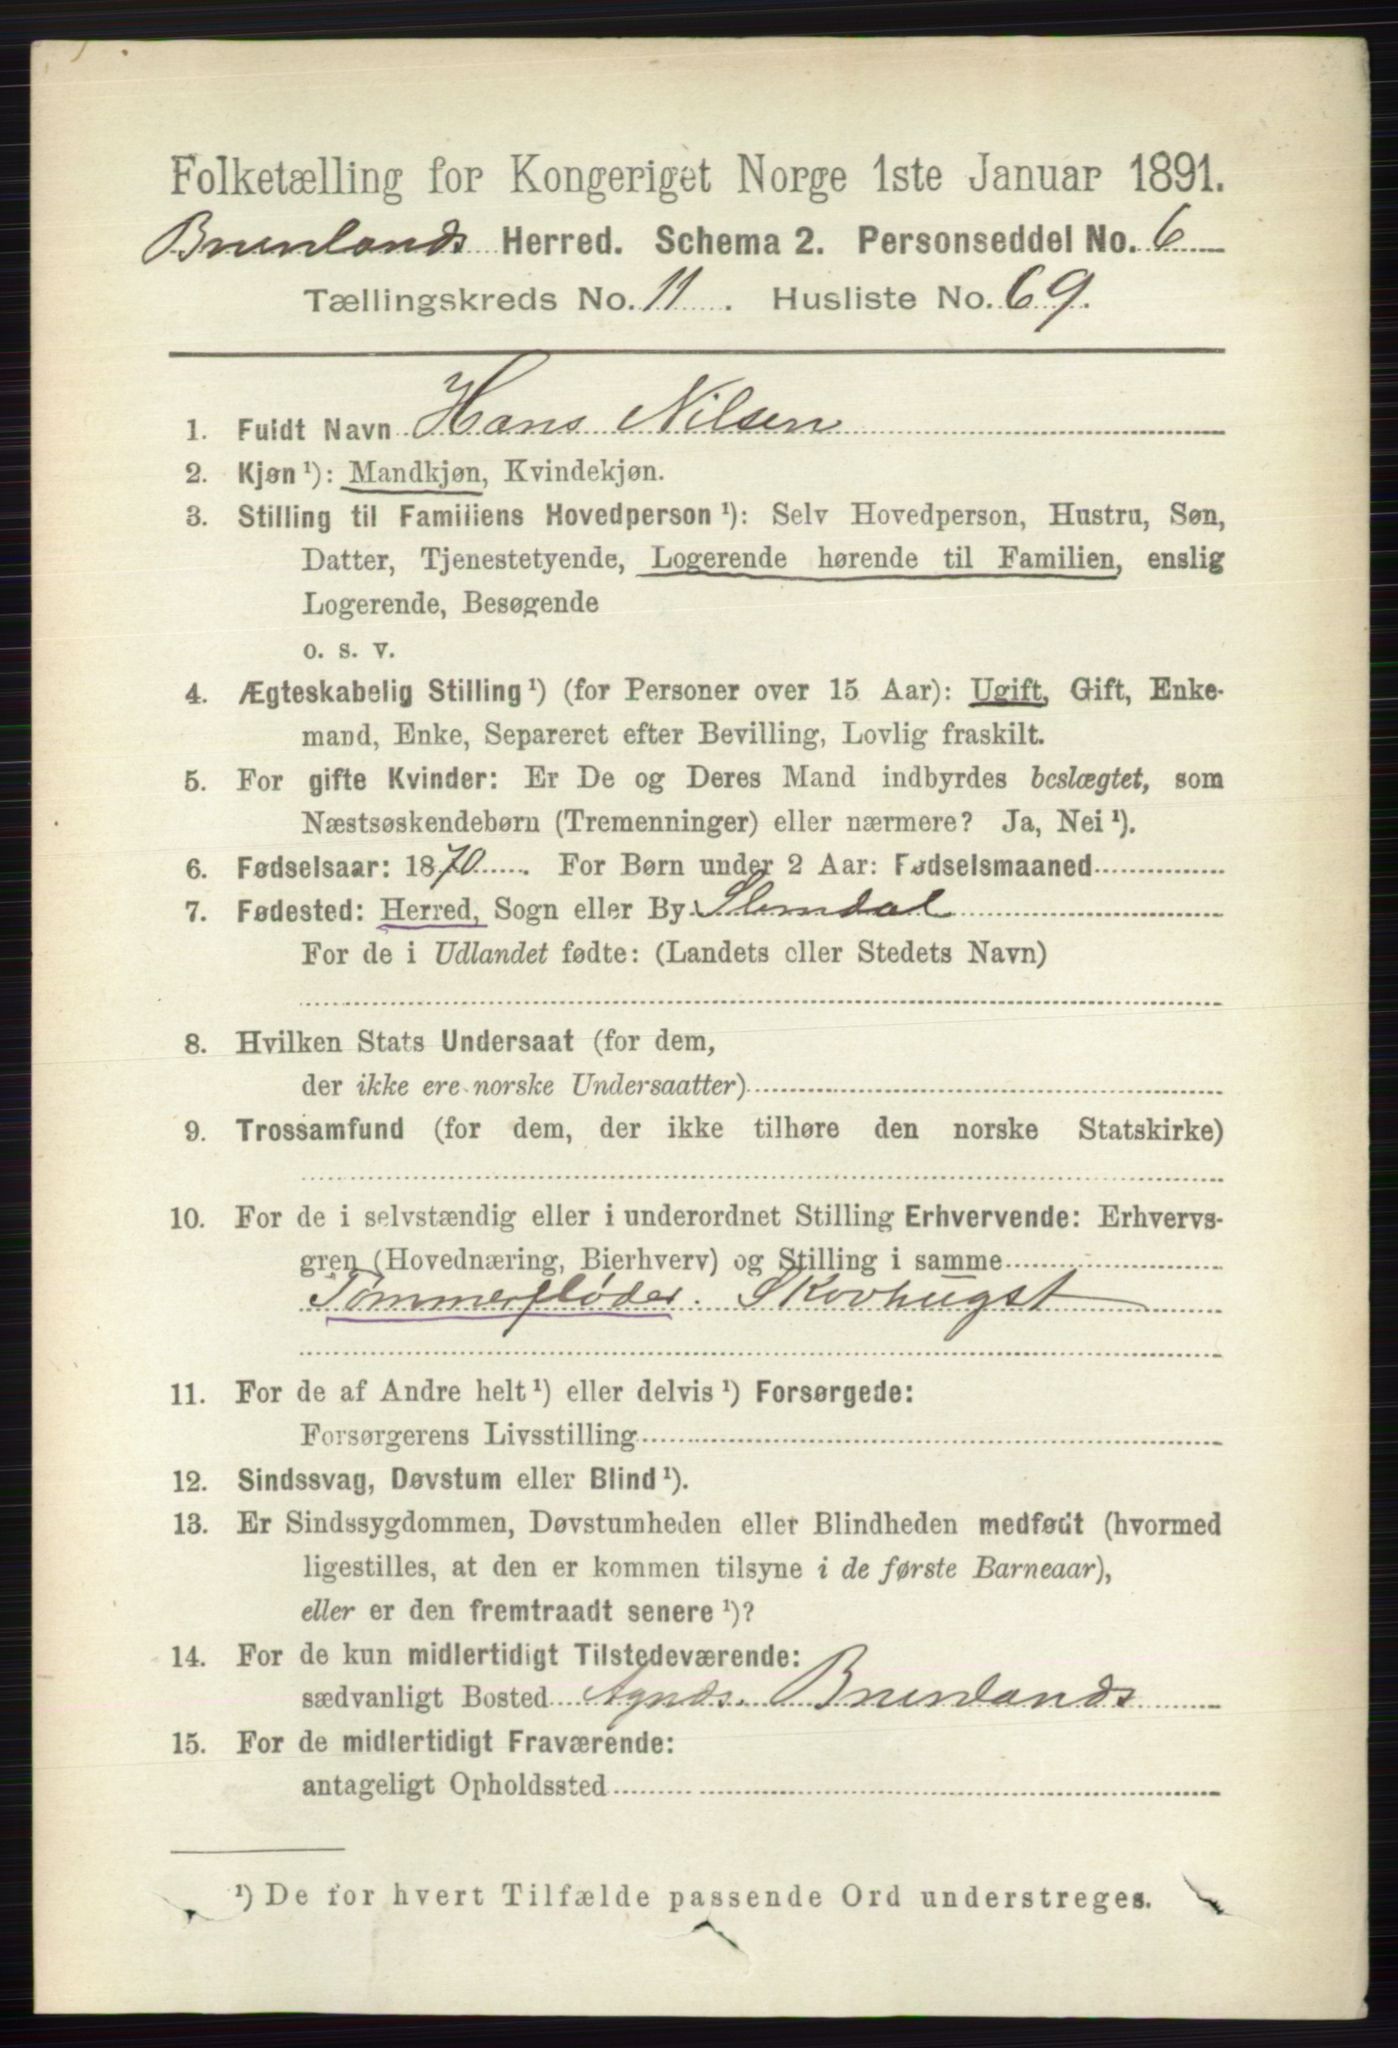 Folketælling for Kongeriget Norge 1ste Januar 1891.
Brunlands Herred. Schema 2. Personseddel No. 6
Tællingskreds No. 11. Husliste No. 69.
1. Fuldt Navn Hans Nilsen
2. Kjøn ¹): Mandkjøn, Kvindekjøn.
3. Stilling til Familiens Hovedperson ¹): Selv Hovedperson, Hustru, Søn,
Datter, Tjenestetyende, Logerende hørende til Familien, enslig
Logerende, Besøgende
o. s. v.
4. Ægteskabelig Stilling ¹) (for Personer over 15 Aar): Ugift, Gift, Enke-
mand, Enke, Separeret efter Bevilling, Lovlig fraskilt.
5. For gifte Kvinder: Er De og Deres Mand indbyrdes beslægtet, som
Næstsøskendebørn (Tremenninger) eller nærmere? Ja, Nei ¹).
6. Fødselsaar: 1870. For Børn under 2 Aar: Fødselsmaaned
7. Fødested: Herred, Sogn eller By Slemdal
For de i Udlandet fødte: (Landets eller Stedets Navn)
8. Hvilken Stats Undersaat (for dem,
der ikke ere norske Undersaatter)
9. Trossamfund (for dem, der ikke tilhøre den norske Statskirke)
10. For de i selvstændig eller i underordnet Stilling Erhvervende: Erhvervs-
gren (Hovednæring, Bierhverv) og Stilling i samme
Tømmerfløder. Skovhugst
11. For de af Andre helt ¹) eller delvis ¹) Forsørgede:
Forsørgerens Livsstilling
12. Sindssvag, Døvstum eller Blind ¹).
13. Er Sindssygdommen, Døvstumheden eller Blindheden medfødt (hvormed
ligestilles, at den er kommen tilsyne i de første Barneaar),
eller er den fremtraadt senere ¹)?
14. For de kun midlertidigt Tilstedeværende:
sædvanligt Bosted Brunlands
15. For de midlertidigt Fraværende:
antageligt Opholdssted
¹) De for hvert Tilfælde passende Ord understreges.